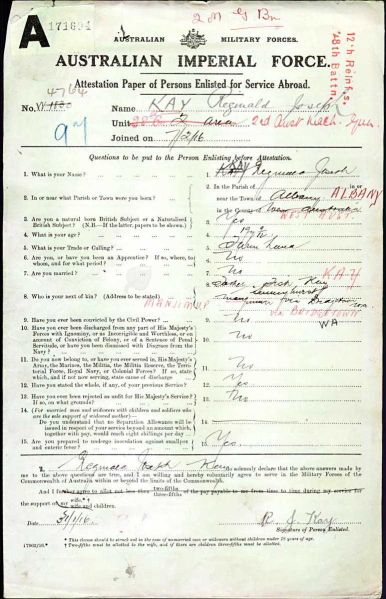 A 171604
2 M G Bn
AUSTRALIAN MILITARY FORCES.
AUSTRALIAN IMPERIAL FORCE.
12th Reinfs.
28th Battn.
Attestation Paper of Persons Enlisted for Service Abroad.
4764
No. Name KAY Reginald Joseph
Unit
Joined on 7/2/16
Questions to be put to the Person Enlisting before Attestation.
1. What is your Name? 1. KAY Reginald Joseph
2. In or near what Parish or Town were you born? 2. In the Parish of in or
near the Town of Albany ALBANY
in the County of
3. Are you a natural born British Subject or a Naturalised British Subject? (N.B.—If the latter, papers to be shown) 3. Yes
4. What is your age? 4.
5. What is your Trade or Calling? 5.
6. Are you, or have you been an Apprentice? If so, where, to whom, and for what period? 6. No
7. Are you married? 7. No
8. Who is your next of kin? (Address to be stated) 8. Kay KAY
MANJIMUP via BRIDGETOWN
WA
9. Have you ever been convicted by the Civil Power? 9. No
10. Have you ever been discharged from any part of His Majesty's Forces with Ignominy, or as Incorrigible and Worthless, or on account of Conviction of Felony, or of a Sentence of Penal Servitude, or have you been dismissed with Disgrace from the Navy? 10.
11. Do you now belong to, or have you ever served in, His Majesty's Army, the Marines, the Militia, the Militia Reserve, the Territorial Force, Royal Navy, or Colonial Forces? If so, state which, and if not now serving, state cause of discharge 11. No
12. Have you stated the whole, if any, of your previous Service? 12.
13. Have you ever been rejected as unfit for His Majesty's Service? If so, on what grounds? 13. No
14. (For married men and widowers with children and soldiers who are the sole support of widowed mother)—
Do you understand that no Separation Allowance will be issued in respect of your service beyond an amount which, together with pay, would reach eight shillings per day 14.
15. Are you prepared to undergo inoculation against smallpox and enteric fever? 15. Yes
I, Reginald Joseph Kay do solemnly declare that the above answers made by
me to the above questions are true, and I am willing and hereby voluntarily agree to serve in the Military Forces of the
Commonwealth of Australia within or beyond the limits of the Commonwealth.
And I further agree to allot not less than two-fifths three-fifths of the pay payable to me from time to time during my service for
the support of my wife wife and children.
Date
R. J. Kay
Signature of Person Enlisted.
* This clause should be struck out in the case of unmarried men or widowers without children under 18 years of age.
† Two-fifths must be allotted to the wife, and if there are children three-fifths must be allotted.